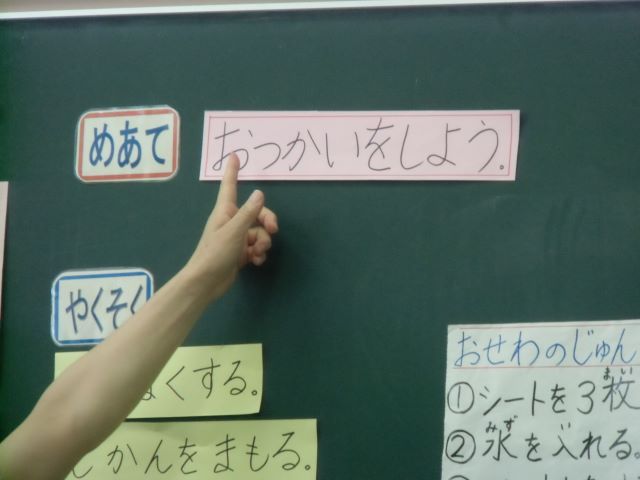 めあて
おつかいをしよう。
やくそく
なくする。
じかんをまもる。
おせわのじゅん
①シートを3枚
まい
②水を入れる。
みず